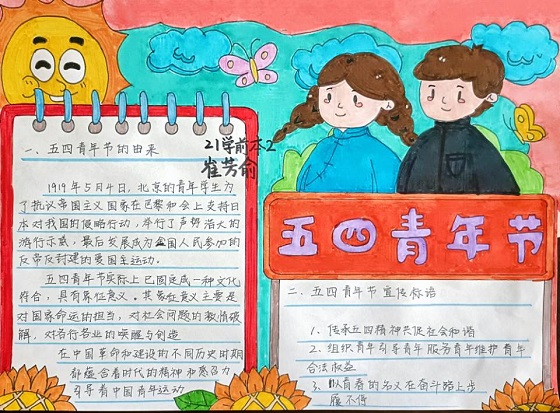 一、五四青年节的由来
21学前本2
崔芳俞
1919年5月4日，北京的青年学生为
了抗议帝国主义国家在巴黎和会上支持日
本对我国的侵略行动，举行了声势浩大的
游行示威，最后发展成为全国人民参加的
反帝反封建的爱国主运动。
五四青年节实际上已固定成一种文化
符合，具有象征意义。其象征意义主要是
对国家命运的担当，对社会问题的敏慎破
解，对各行各业的唤醒与创造
在中国革命和建设的不同历史时期
都蕴含着时代的精神和感召力
引导着中国青年运动
五四青年节
二、五四青年节宣传标语
1、传承五四精神共促社会和谐
2、组织青年引导青年服务青年维护青年
合法权益
3、以青春的名义在奋斗路上步
履不停